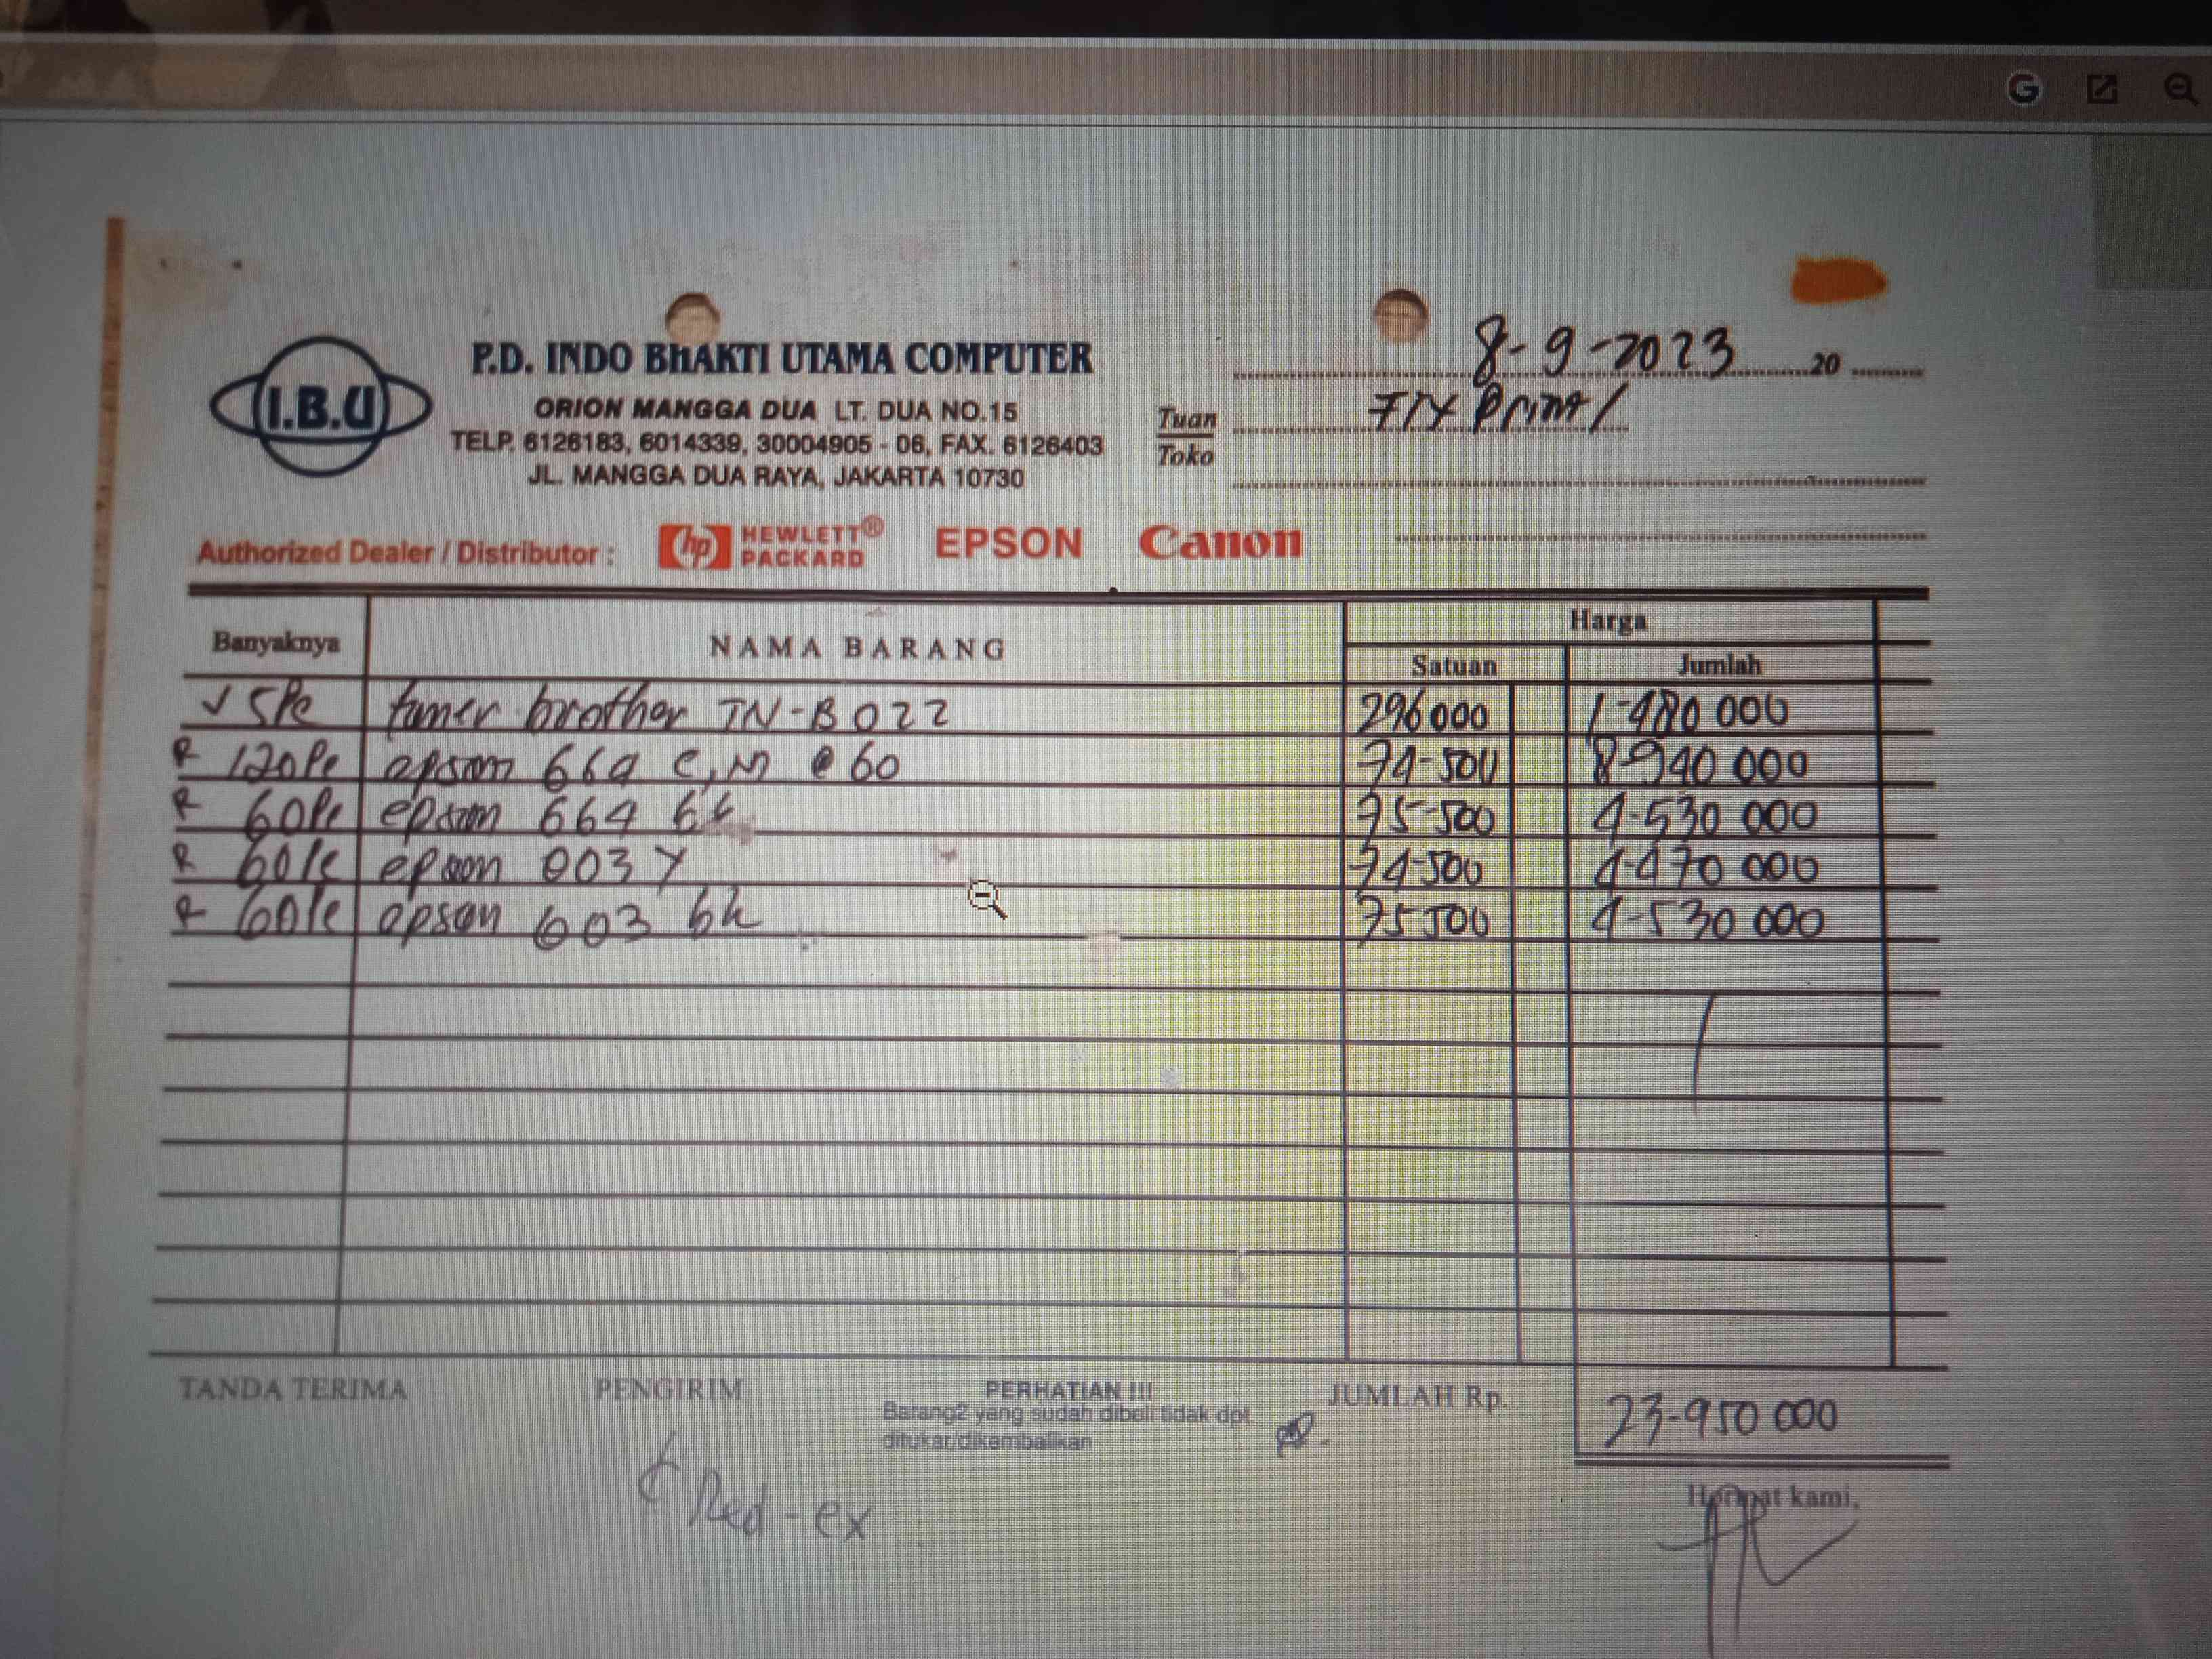 I.B.U
P.D. INDO BHAKTI UTAMA COMPUTER
ORION MANGGA DUA LT. DUA NO.15
TELP. 6126183, 6014339, 30004905 - 06, FAX. 6126403
JL. MANGGA DUA RAYA, JAKARTA 10730
8-9-2023 20
Tuan
Toko
Fix Print /
Authorized Dealer / Distributor : hp HEWLETT® PACKARD EPSON Canon
Banyaknya NAMA BARANG Harga
Satuan Jumlah
√ 5Pc toner brother TN-B022 296000 1-480 000
R 120Pc epson 664 C, M @ 60 74-500 8-940 000
R 60Pc epson 664 bk 75-500 4-530 000
R 60Pc epson 003 Y 74-500 4-470 000
R 60Pc epson 003 bk 75 500 4-530 000
TANDA TERIMA PENGIRIM PERHATIAN !!! JUMLAH Rp. 23-950 000
Barang2 yang sudah dibeli tidak dpt.
ditukar/dikembalikan
Red-ex
Hormat kami,